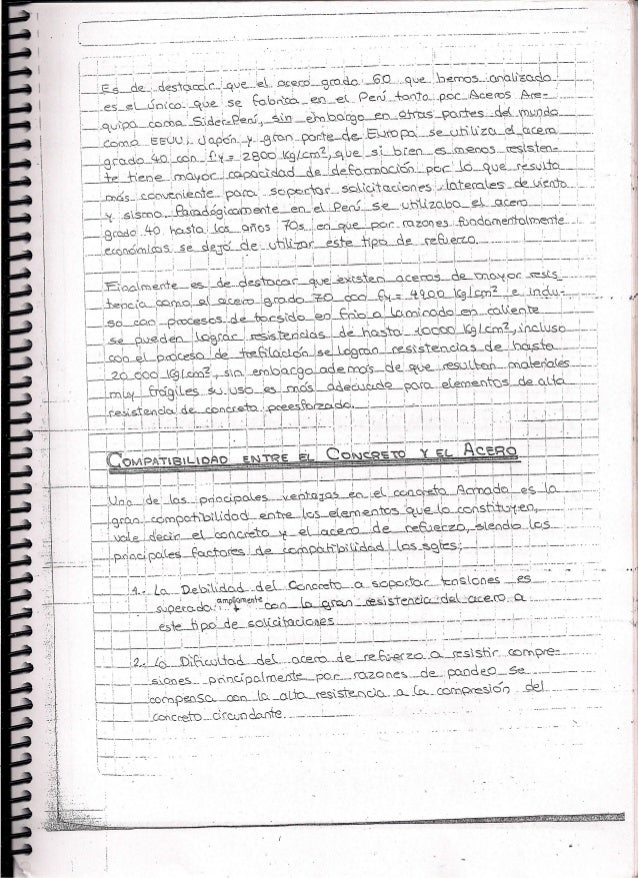 Es de destacar que el acero grado 60 que hemos analizado
es el único que se fabrica en el Perú tanto por Aceros Are-
quipa como Sider-Perú, sin embargo en otras partes del mundo
como EEUU, Japón y gran parte de Europa se utiliza el acero
grado 40 con fy = 2800 kg/cm², que si bien es menos resisten-
te tiene mayor capacidad de deformación por lo que resulta
más conveniente para soportar solicitaciones laterales de viento
y sismo. Paradógicamente en el Perú se utilizaba el acero
grado 40 hasta los años 70s en que por razones fundamentalmente
económicas se dejó de utilizar este tipo de refuerzo.
Finalmente es de destacar que existen aceros de mayor resis
tencia como el acero grado 70 con fy = 4900 kg/cm² e inclu-
so con procesos de torsido en frío o laminado en caliente
se pueden lograr resistencias de hasta 10000 kg/cm², incluso
con el proceso de trefilación se logran resistencias de hasta
20 000 kg/cm², sin embargo además de que resultan materiales
muy frágiles su uso es más adecuado para elementos de alta
resistencia de concreto preesforzado.
COMPATIBILIDAD ENTRE EL CONCRETO Y EL ACERO
Una de las principales ventajas en el concreto Armado es la
gran compatibilidad entre los elementos que lo constituyen,
vale decir el concreto y el acero de refuerzo, siendo los
principales factores de compatibilidad los sgtes:
1.- La Debilidad del Concreto a soportar tensiones es
superada ampliamente con la gran resistencia del acero a
este tipo de solicitaciones
2.- La Dificultad del acero de refuerzo a resistir compre-
siones principalmente por razones de pandeo se
compensa con la alta resistencia a la compresión del
concreto circundante.